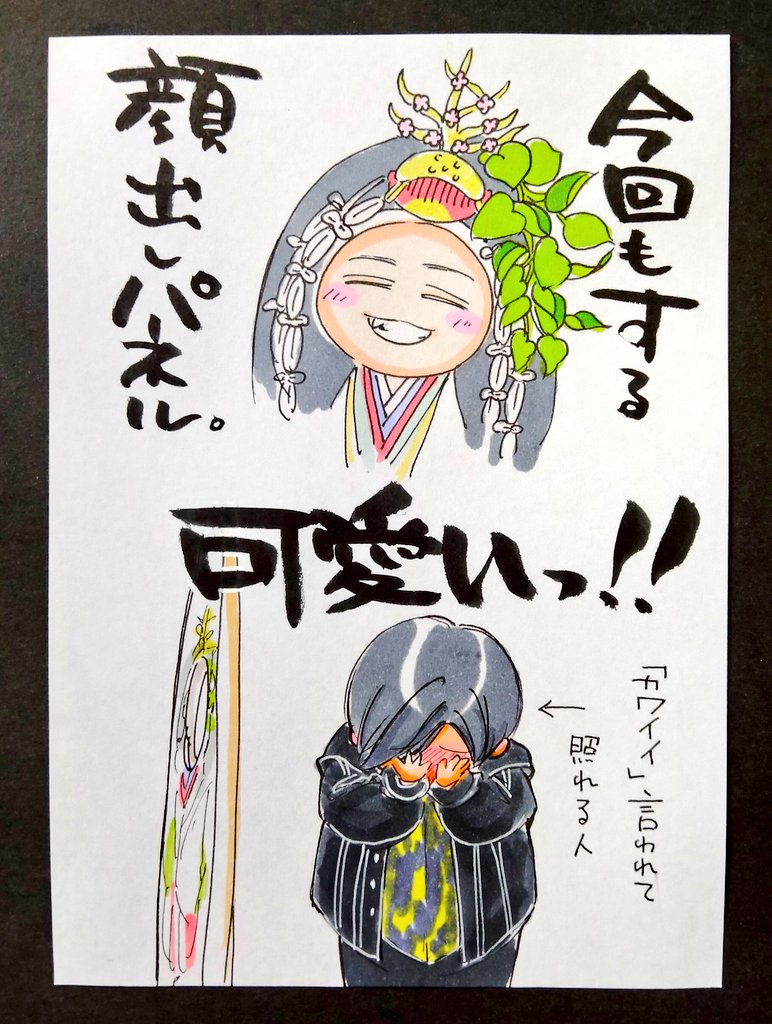 今回もする
顔出しパネル。
可愛いっ!!
「カワイイ」言われて
照れる人